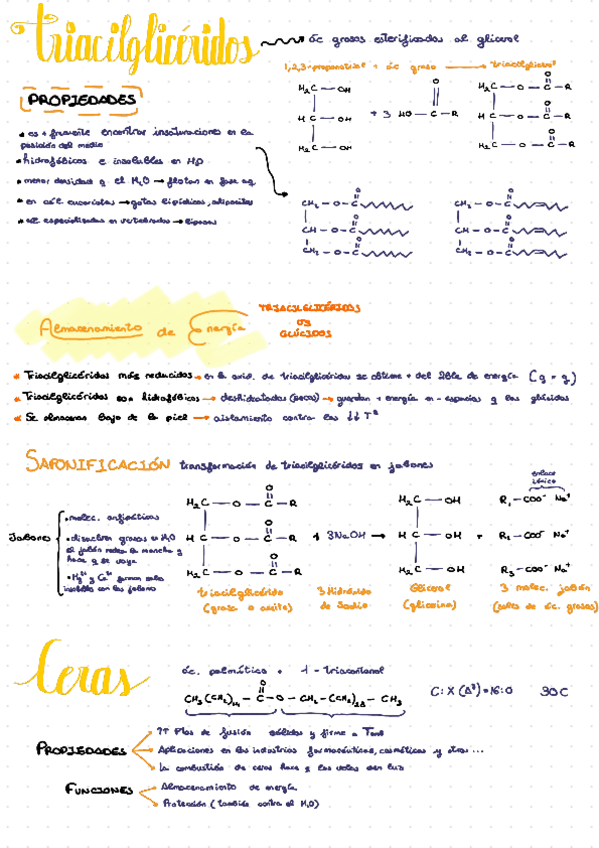 Triacilglicéridos
ác grasos esterificados al glicerol
1,2,3-propanotriol + ác graso → triacilglicerol
H₂C — OH
H C — OH
H₂C — OH
+ 3 HO — C — R
O
H₂C — O — C — R
O
H C — O — C — R
O
H₂C — O — C — R
O
PROPIEDADES
• es + frecuente encontrar insaturaciones en la
posición del medio
• hidrofóbicos e insolubles en H₂O
• menor densidad q el H₂O → flotan en fase aq
• en cél eucariotas → gotas lipídicas, adipocitos
• cél especializadas en vertebrados → lipasas
CH₂ — O — C
O
CH — O — C
O
CH₂ — O — C
O
CH₂ — O — C
O
CH — O — C
O
CH₂ — O — C
O
Almacenamiento de Energía
TRIACILGLICÉRIDOS
VS
GLÚCIDOS
• Triacilglicéridos más reducidos → en la oxid. de triacilglicéridos se obtiene + del doble de energía (g a g)
• Triacilglicéridos son hidrofóbicos → deshidratados (secos) → guardan + energía en - espacio q los glúcidos
• Se almacenan bajo de la piel → aislamiento contra las ↓↓ Tª
SAPONIFICACIÓN transformación de triacilglicéridos en jabones
Jabones
• molec. anfipáticas
• disuelven grasas en H₂O
el jabón rodea la mancha y
hace q se vaya
• Mg²⁺ y Ca²⁺ forman sales
insolubles con los jabones
H₂C — O — C — R
O
H C — O — C — R
O
H₂C — O — C — R
O
+ 3NaOH →
H₂C — OH
H C — OH
H₂C — OH
+
enlace
iónico
R₁ — COO⁻ Na⁺
R₂ — COO⁻ Na⁺
R₃ — COO⁻ Na⁺
triacilglicérido
(grasa o aceite)
3 Hidróxido
de Sodio
Glicerol
(glicerina)
3 molec. jabón
(sales de ác. grasos)
Ceras
ác. palmítico + 1 - triacontanol
CH₃(CH₂)₁₄ — C — O — CH₂ — (CH₂)₂₈ — CH₃
O
C:X (Δᵃ) = 16:0
30C
PROPIEDADES
↑↑ Ptos de fusión sólidos y firme a Tamb
Aplicaciones en las industrias farmacéuticas, cosméticas y otras...
La combustión de ceras hace q las velas den luz
FUNCIONES
Almacenamiento de energía
Protección (también contra el H₂O)